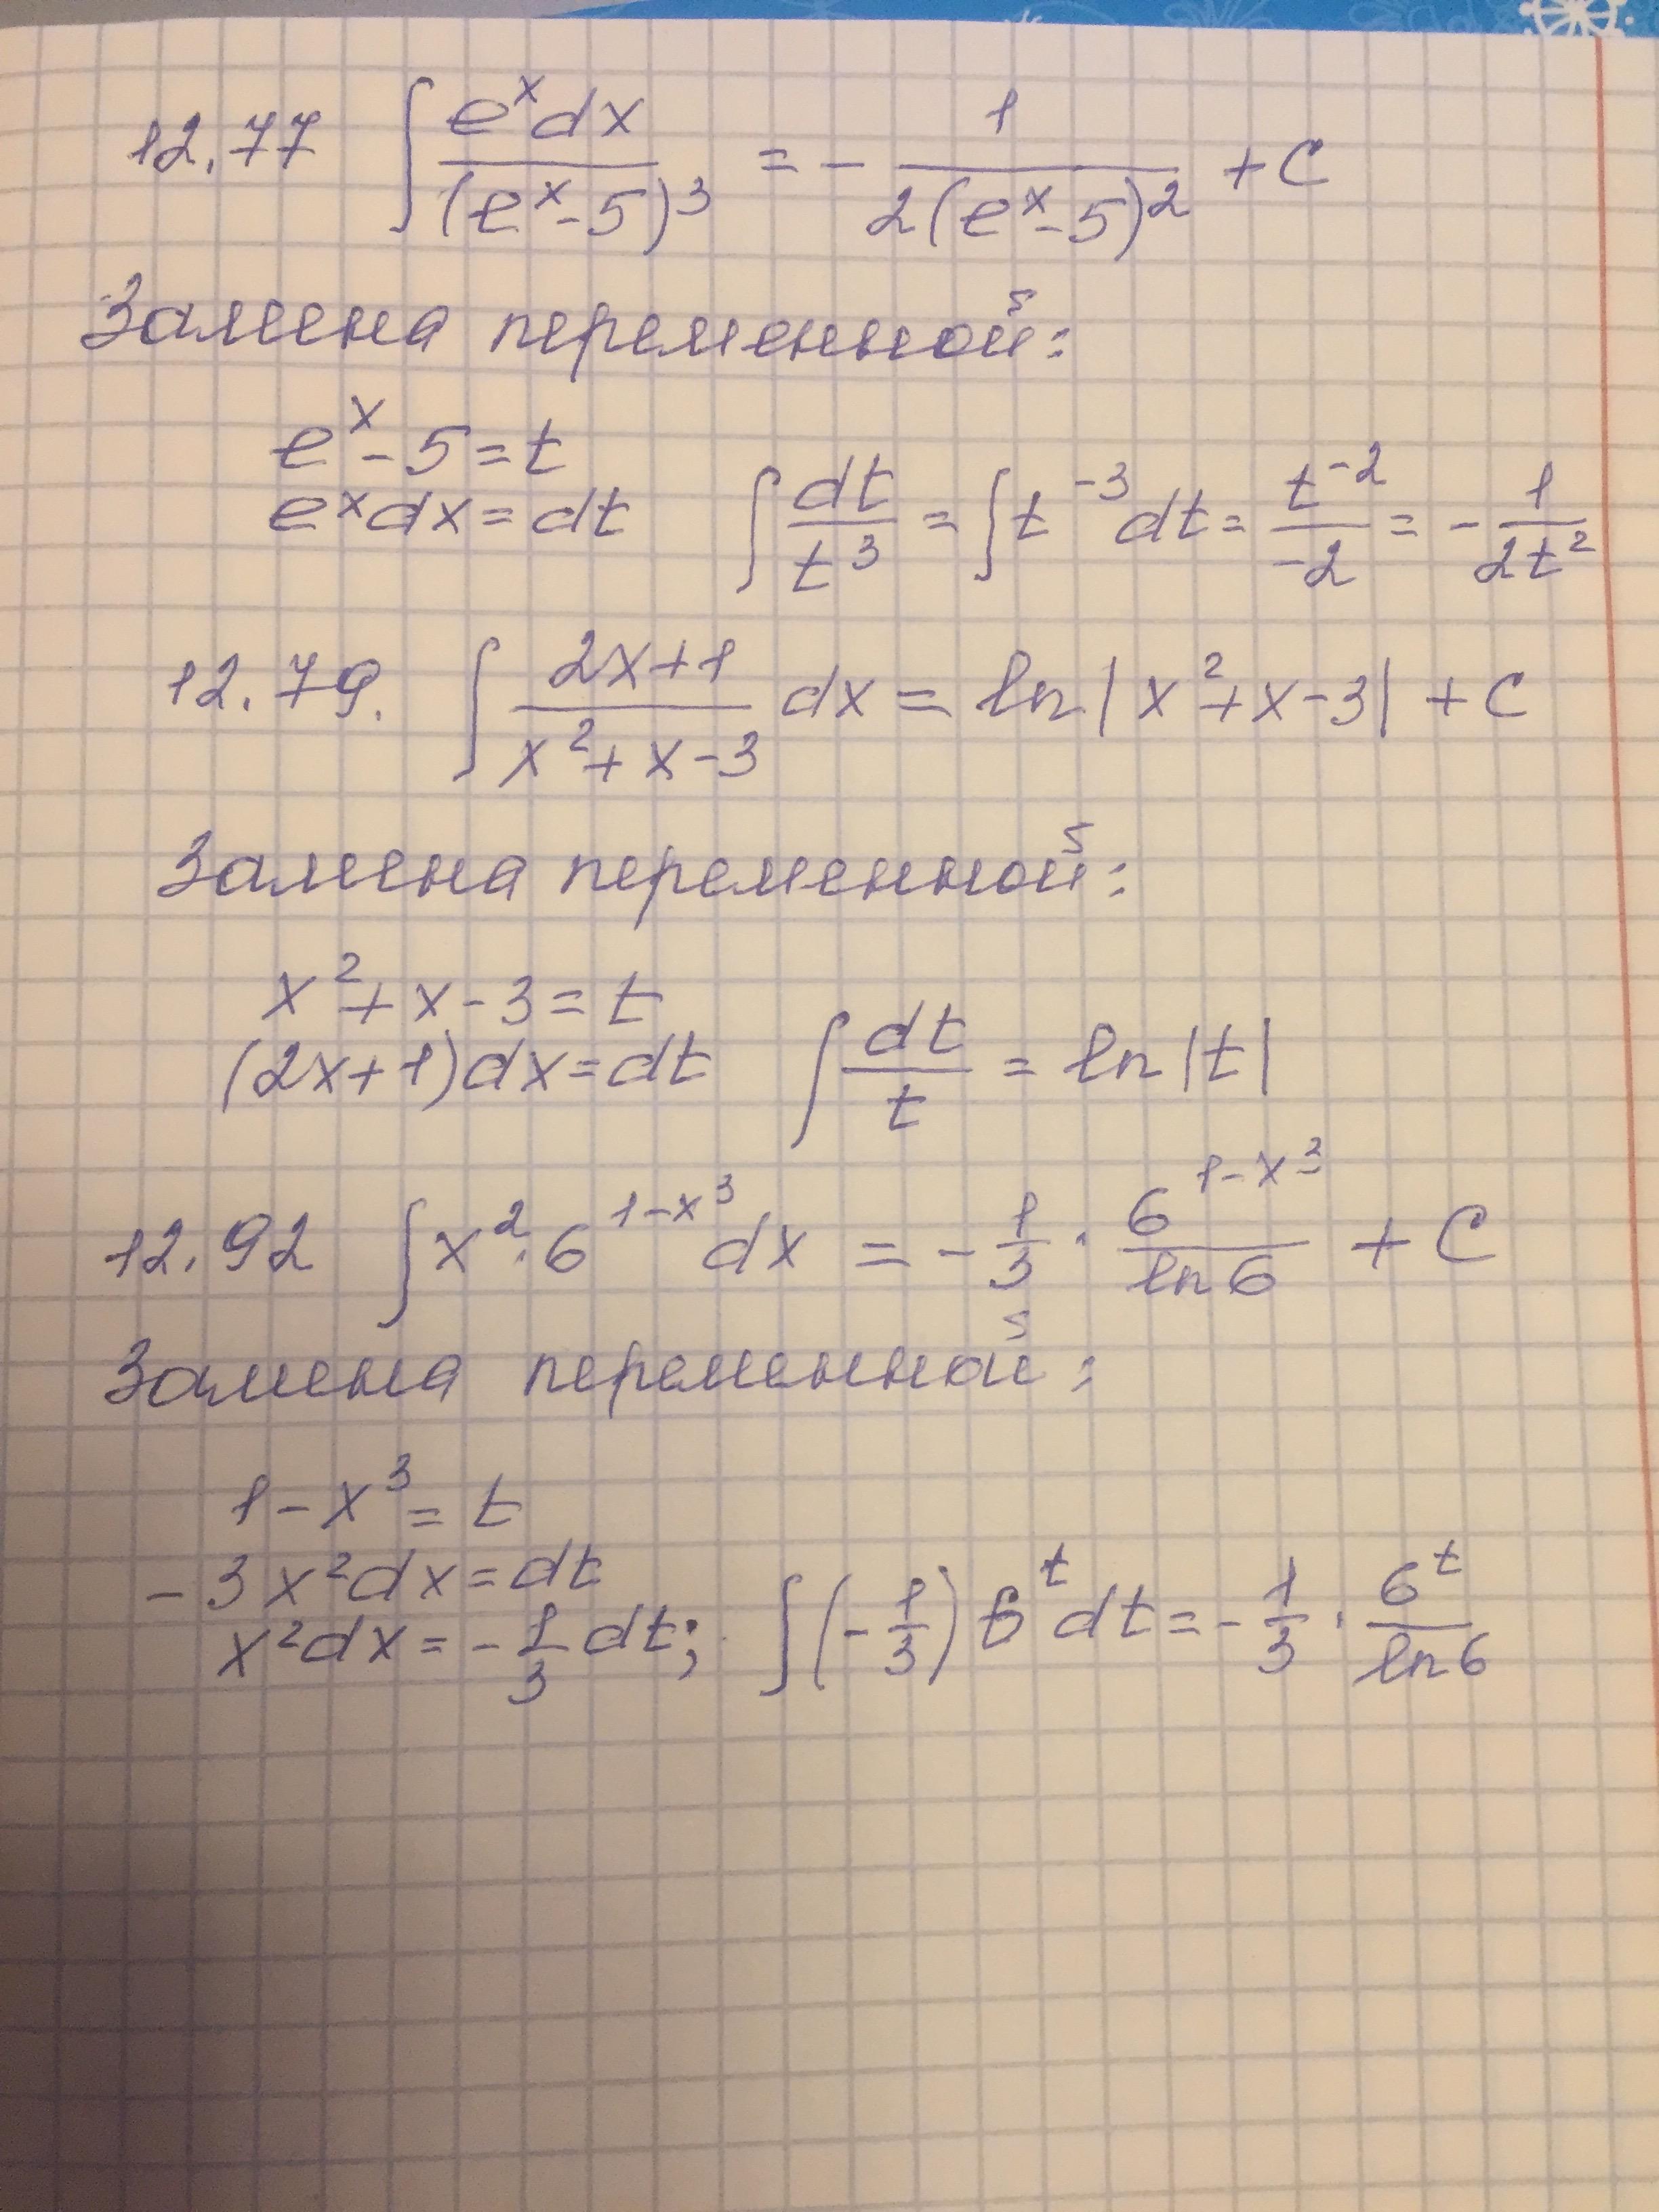 12.77 ∫ e^x dx / (e^x - 5)^3 = - 1 / 2(e^x - 5)^2 + C
Замена переменной:
e^x - 5 = t
e^x dx = dt ∫ dt / t^3 = ∫ t^-3 dt = t^-2 / -2 = - 1 / 2t^2
12.79. ∫ 2x+1 / x^2+x-3 dx = ln|x^2+x-3| + C
Замена переменной:
x^2+x-3 = t
(2x+1)dx = dt ∫ dt / t = ln|t|
12.92 ∫ x^2 · 6^1-x^3 dx = - 1/3 · 6^1-x^3 / ln6 + C
Замена переменной:
1 - x^3 = t
-3x^2dx = dt
x^2dx = - 1/3 dt; ∫ (- 1/3) 6^t dt = - 1/3 · 6^t / ln6